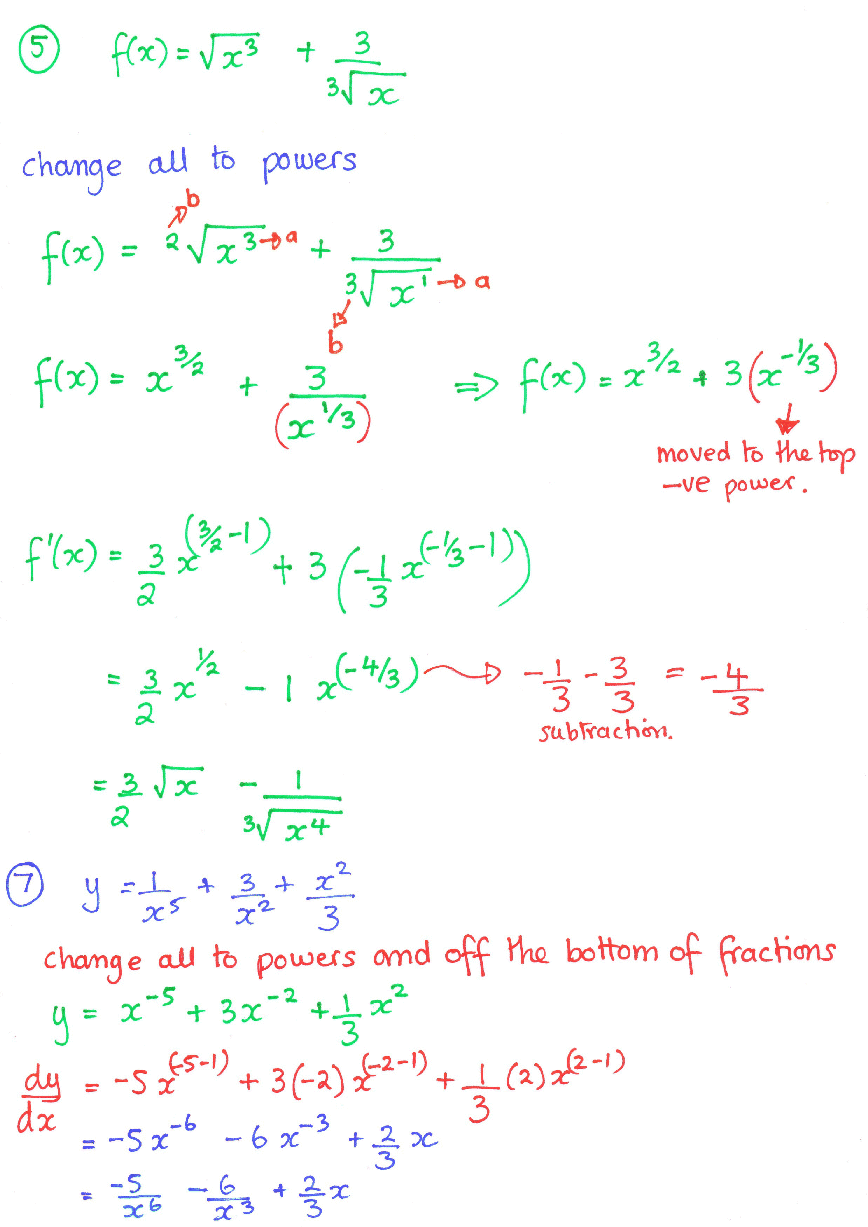 ⑤ f(x) = √x³ + 3/∛x
change all to powers
b
f(x) = ²√x³ → a + 3/∛x¹ → a
b
f(x) = x^(3/2) + 3/(x^(1/3)) ⇒ f(x) = x^(3/2) + 3(x^(-1/3))
moved to the top
-ve power.
f'(x) = 3/2 x^(3/2-1) + 3(-1/3 x^(-1/3-1))
= 3/2 x^(1/2) - 1 x^(-4/3) → -1/3 - 3/3 = -4/3
subtraction.
= 3/2 √x - 1/∛x⁴
⑦ y = 1/x⁵ + 3/x² + x²/3
change all to powers and off the bottom of fractions
y = x⁻⁵ + 3x⁻² + 1/3 x²
dy/dx = -5x^(-5-1) + 3(-2)x^(-2-1) + 1/3 (2)x^(2-1)
= -5x⁻⁶ - 6x⁻³ + 2/3 x
= -5/x⁶ - 6/x³ + 2/3 x